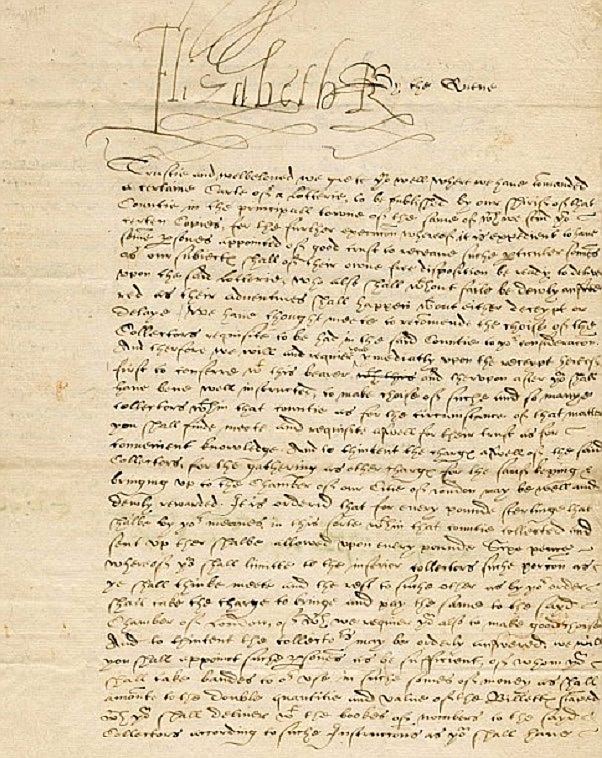 Elizabeth R By the Quene
Trustie and welbeloved, we grete yow well, where we have comanded
a certaine Carte of a Lotterie, to be published by our shirif of that
Countie in the principall towne of the same of wch we send yow
certen Copies, for the further execucon whereof it is expedient to have
some psones appointed of good trust to receave suche pticuler somes
as our subiects shall of their owne free disposition be ready to deliver
upon the said Lotterie, who also shall wthout faile be dewly answe
red as their adventures shall happen wthout either deceypt or
delaye, We have thought meete to recomende the choise of the
Collectors requisite to be had in the said Countie to yor consideracon.
And therfore we will and require imediatly upon the receypt hereof
first to conferre wt this bearer and therupon after ye shall
have bene well instructed, to make choise of suche and so manye
collectors wthin that countie as for the circumstance of that matter
you shall finde meete and requisite aswell for their trust as for
convenient knowledge. And to thintent the charge aswell of the said
Collectors, for the gathering as other charge for the saufe keping &
bringing up to the Chamber of our Citie of London may be well and
dewly rewarded. It is ordered that for every pounde sterlinge that
shalbe by yor meanes in this sorte wthin that countie collected and
sent up ther shalbe allowed upon every pounde Sixe pence
whereof ye shall limitte to the inferior collectors suche porcon as
ye shall thinke meete and the rest to suche other as by yor order
shall take the charge to bringe and pay the same to the sayd
Chamber of London, of wch we require yow also to make good choise
And to thintent the collectors may be orderly answered, we will
you shall appoint suche psones as be sufficient, of whom ye
shall take bandes to or use in suche somes of money as shall
amounte to the double quantitie and value of the Billetts
wch ye shall deliver wt the bookes of nombers to the sayd
Collectors according to suche Instructions as ye shall have